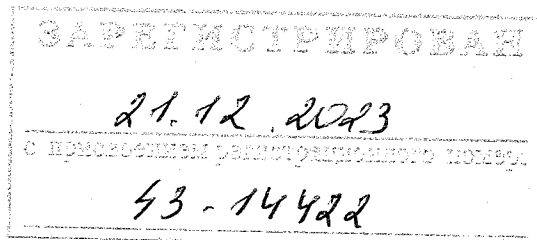 ЗАРЕГИСТРИРОВАН
21.12.2023
с присвоением регистрационного номера
43-14422